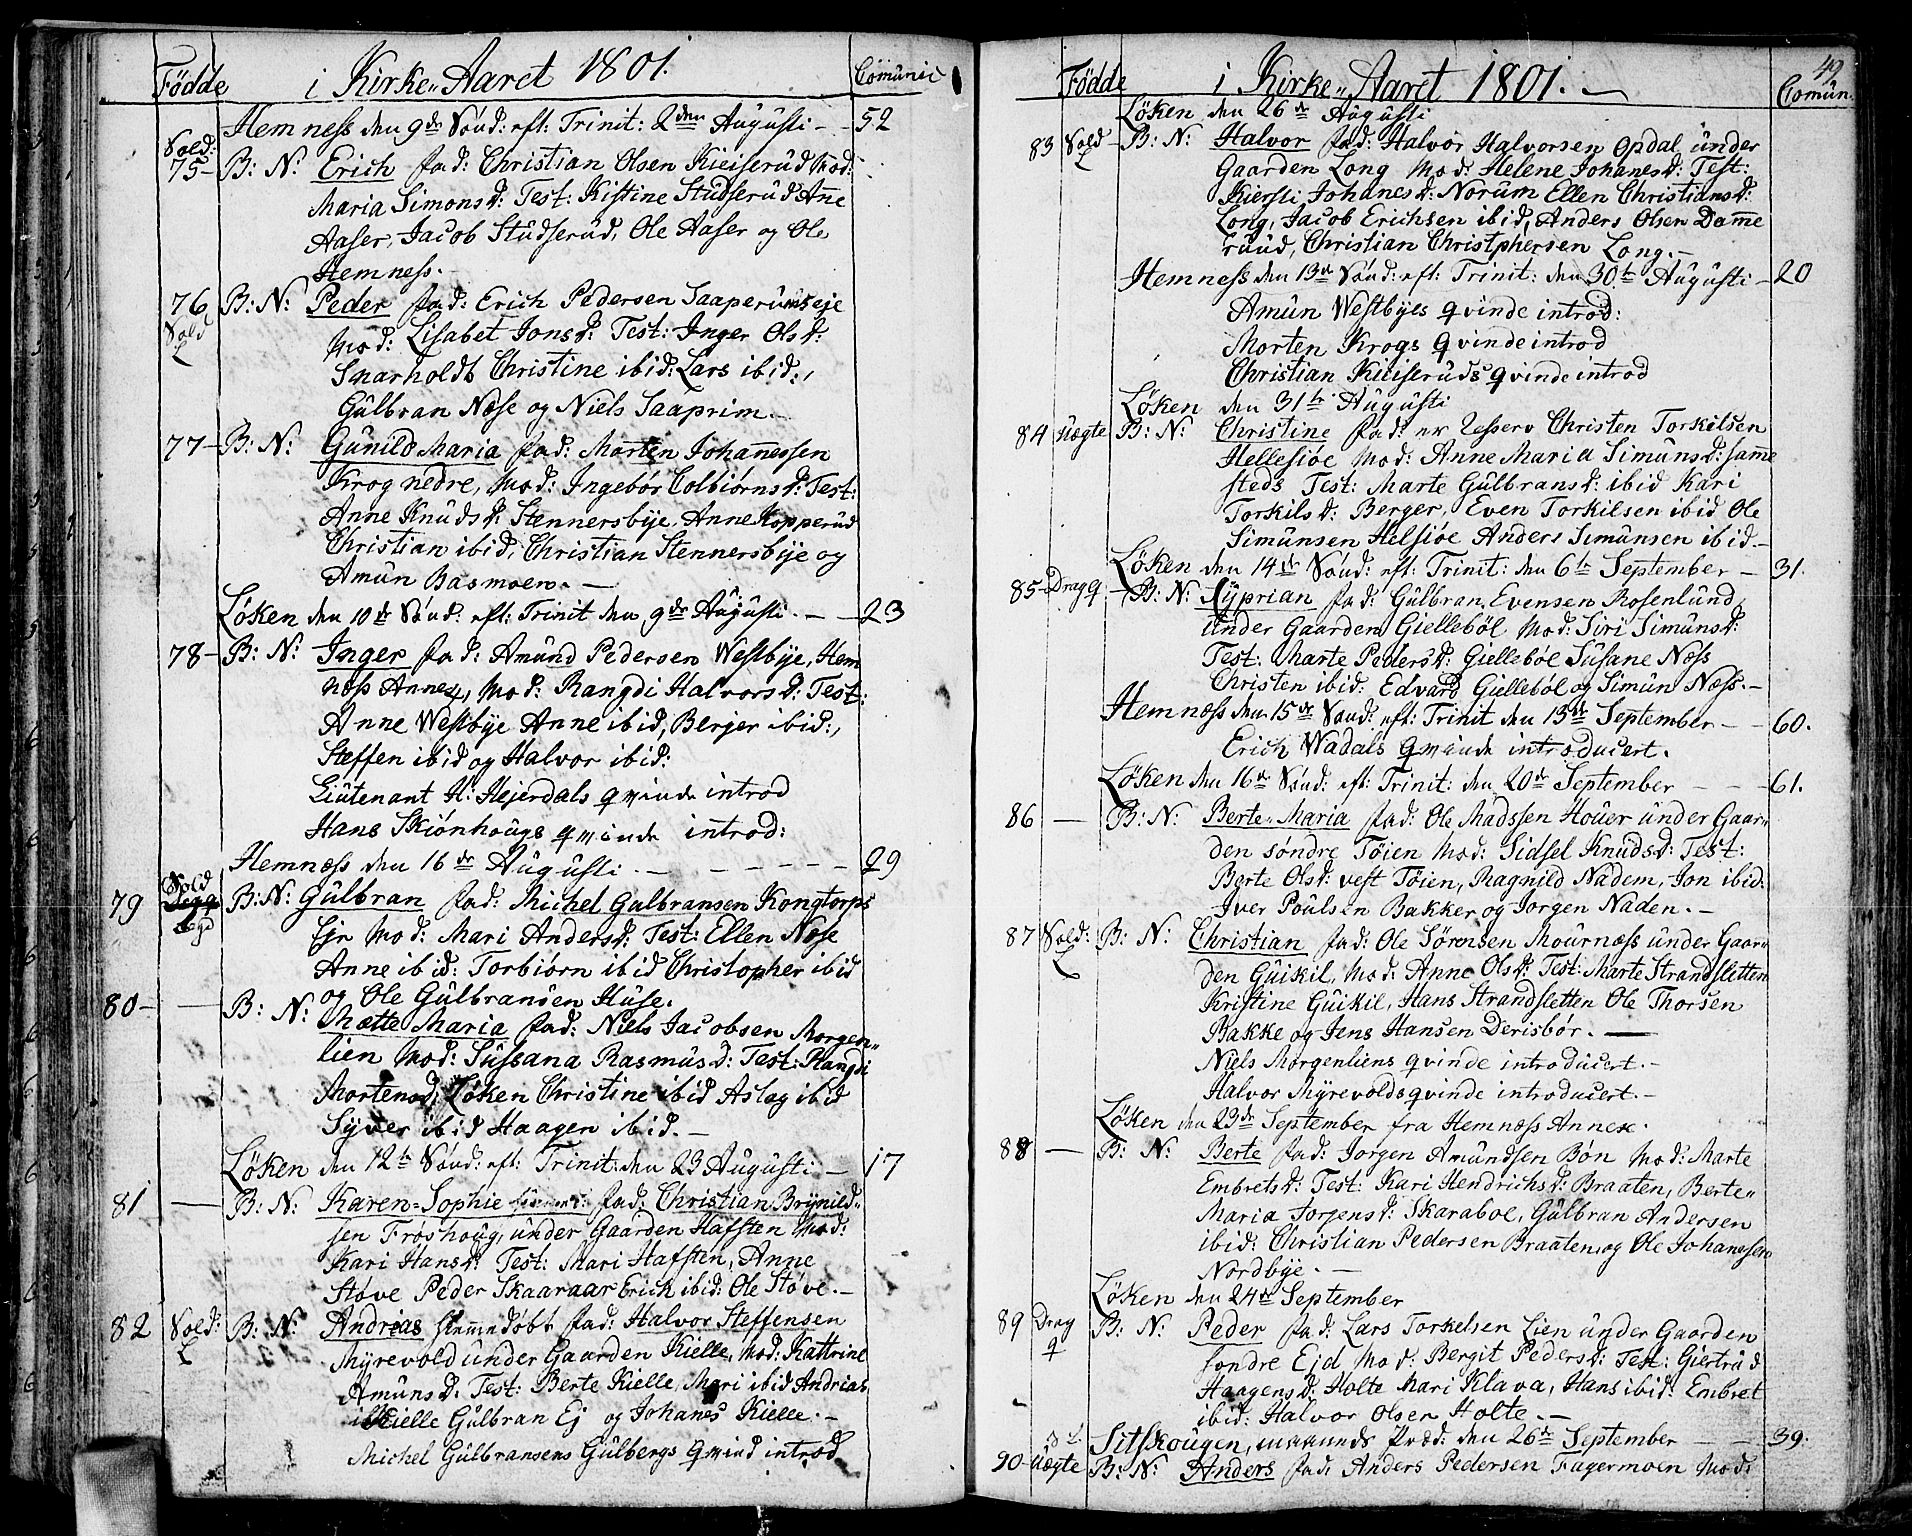 Födde i Kirke-Aaret 1801. Comunic
Hemness den 9de Sönd: eft: Trinit: 2den Augusti - - 52
Sold:
75- B: N: Erich fad: Christian Olsen Kieiserud Mod:
Maria Simonsd: Test: Kistine Studserud Anne
Aaser, Jacob Studserud, Ole Aaser og Ole
Hemness.-
76 B: N: Peder fad: Erich Pedersen Saaperudseje
Sold
L
Mod: Lisabet Jonsd: Test: Inger Olsd:
Snarholdt Christine ibid: Lars ibid:,
Gulbran Nøse og Niels Saaprim.-
77- B: N: Gunild Maria fad: Morten Johannessen
Krog nedre, Mod: Ingebør Colbiørnsd: Test:
Anne Knudsd: Stennersbye, Anne Kopperud
Christian ibid, Christian Stennersbye og
Amun Basmoen.-
Löken den 10de Sönd: eft: Trinit den 9de Augusti.- - 23
78- B: N: Inger fad: Amund Pedersen Westbye, Hem
næss Annex, Mod: Rangdi Halvorsd: Test:
Anne Westbye Anne ibid, Berjer ibid:,
Steffen ibid og Halvor ibid:
Liutenant H: Hejerdals qvinde introd
Hans Skiönhougs qvinde introd:
Hemnæss den 16de Augusti.- - - - - 29
Sold
79 B: N: Gulbran fad: Michel Gulbransen Kongtorps
Ejr Mod: Mari Andersd: Test: Ellen Nøse
Anne ibid: Torbiørn ibid Christopher ibid
og Ole Gulbransen Huse.
80- — B: N: Mætte Maria fad: Niels Jacobsen Morgen-
lien Mod: Sussana Rasmusd: Test: Rangdi
Mortensd, Løken Christine ibid Aslag ibid
Syver ibid Haagen ibid.-
Löken den 12te Sönd: eft: Trinit: den 23 Augusti - 17
81 — B: N: Karen-Sophie fad: Christian Brynild-
sen Frøshoug, under Gaarden Hafsten Mod:
Kari Hansd: Test: Mari Hafsten, Anne
Støve Peder Skaaraar Erich ibid: Ole Støve.-
82 Sold: B: N: Andreas hiemmedøbt fad: Halvor Steffensen
L
Myrevold under Gaarden Kielle, Mod: Kattrine
Amunsd: Test: Berte Kielle, Mari ibid Andrias
Kielle Gulbran Ej og Johanes Kielle.-
Michel Gulbransens Gulbergs Qvind introd
49
Födde i Kirke-Aaret 1801.- Comun.
Löken den 26de Augusti
83 Sold- B: N: Halvor fad: Halvor Halvorsen Opdal under
L
Gaarden Long Mod: Helene Johanesd: Test:
Kiersti Johanesd: Norum Ellen Christiansd:
Long, Jacob Erichsen ibid, Anders Olsen Damme
ruud, Christian Christphersen Long.-
Hemness den 13de Sönd: eft: Trinit: den 30te Augusti - 20
Amun Westbyes qvinde introd:
Morten Krogs qvinde introd
Christian Kieiseruds qvinde introd
Löken den 31te Augusti
84 Uægte B: N: Christine fad: er Christen Torkilsen
Hellesiøe Mod: Anne Maria Simunsd: samme
steds Test: Marte Gulbransd: ibid Kari
Torkilsd: Berger, Even Torkilsen ibid Ole
Simunsen Helsiøe Anders Simunsen ibid.-
Löken den 14de Sönd: eft: Trinit: den 6te September - 31.
85- Drag q B: N: Syprian fad: Gulbran Evensen Rosenlund,
under Gaarden Gielleböl Mod: Siri Simunsd:
Test: Marte Pedersd: Gielleböl Susane Næss
Christen ibid: Edvard Gielleböl og Simun Næss.-
Hemnæss den 15de Sönd: eft: Trinit den 13de September - - 60.
Erich Wadals qvinde introducert.
Löken den 16de Sönd: eft: Trinit: den 20de September - - - 61.
86 — B: N: Berte-Maria fad: Ole Madssen Houer under Gaar-
den søndre Töien Mod: Sidsel Knudsd: Test:
Berte Olsd: vest Töien, Ragnild Nadem, Jon ibid:
Iver Poulsen Bakker og Jorgen Naden.-
87 Sold: B: N: Christian fad: Ole Sørensen Mournæss under Gaar-
L
den Guikil, Mod: Anne Olsd: Test: Marte Strandsletten
Kristine Guikil, Hans Strandsletten Ole Thorsen
Bakke og Jens Hansen Derisbør.-
Niels Morgenliens qvinde introducert.-
Halvor Myrevolds qvinde introducert.-
Löken den 23de September fra Hemnæss Annex.
88 — B: N: Berte fad: Jorgen Amundsen Bøn Mod: Marte
Embretsd: Test: Kari Hendrichsd: Braaten, Berte-
Maria Jorgensd: Skaraboe, Gulbran Andersen
ibid: Christian Pedersen Braaten og Ole Johanessen
Nordbye.-
Löken den 24de September
89 Drag B: N: Peder fad: Lars Torkelsen Lien under Gaarden
q
søndre Ejd Mod: Bergit Pedersd: Test: Giertrud
Haagensd: Holte Mari Klava, Hans ibid: Embret
ibid: Halvor Olsen Holte.-
Sitskougen, præd: den 26de September - - 39.
90- Uægte B: N: Anders fad: Anders Pedersen Fagermoen Mod: